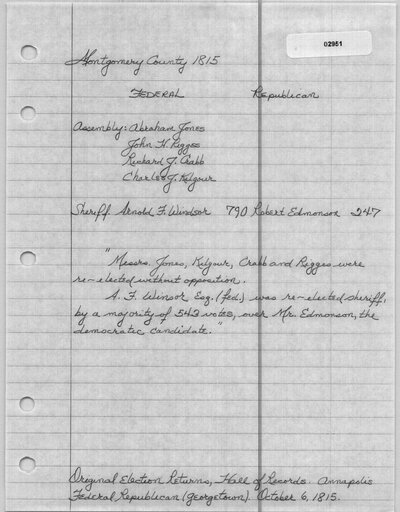 02951
Montgomery County 1815
FEDERAL Republican
Assembly: Abraham Jones
John H. Rigges
Richard J. Crabb
Charles J. Kilgour
Sheriff Arnold F. Windsor 790 Robert Edmonson 247
"Messrs. Jones, Kilgour, Crabb and Rigges were
re-elected without opposition.
A. F. Winsor Esq. (fed.) was re-elected sheriff,
by a majority of 543 votes, over Mr. Edmonson, the
democratic candidate."
Original Election Returns, Hall of Records. Annapolis
Federal Republican (Georgetown). October 6, 1815.